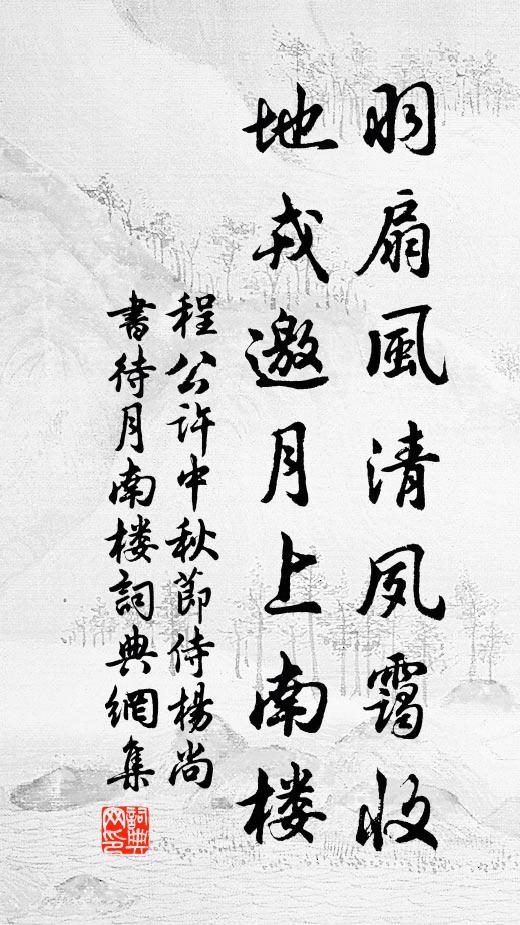 羽扇風清夙靄收
地戎邀月上南楼
程公许中秋節侍楊尚
書待月南楼詞典網集
詞典网印